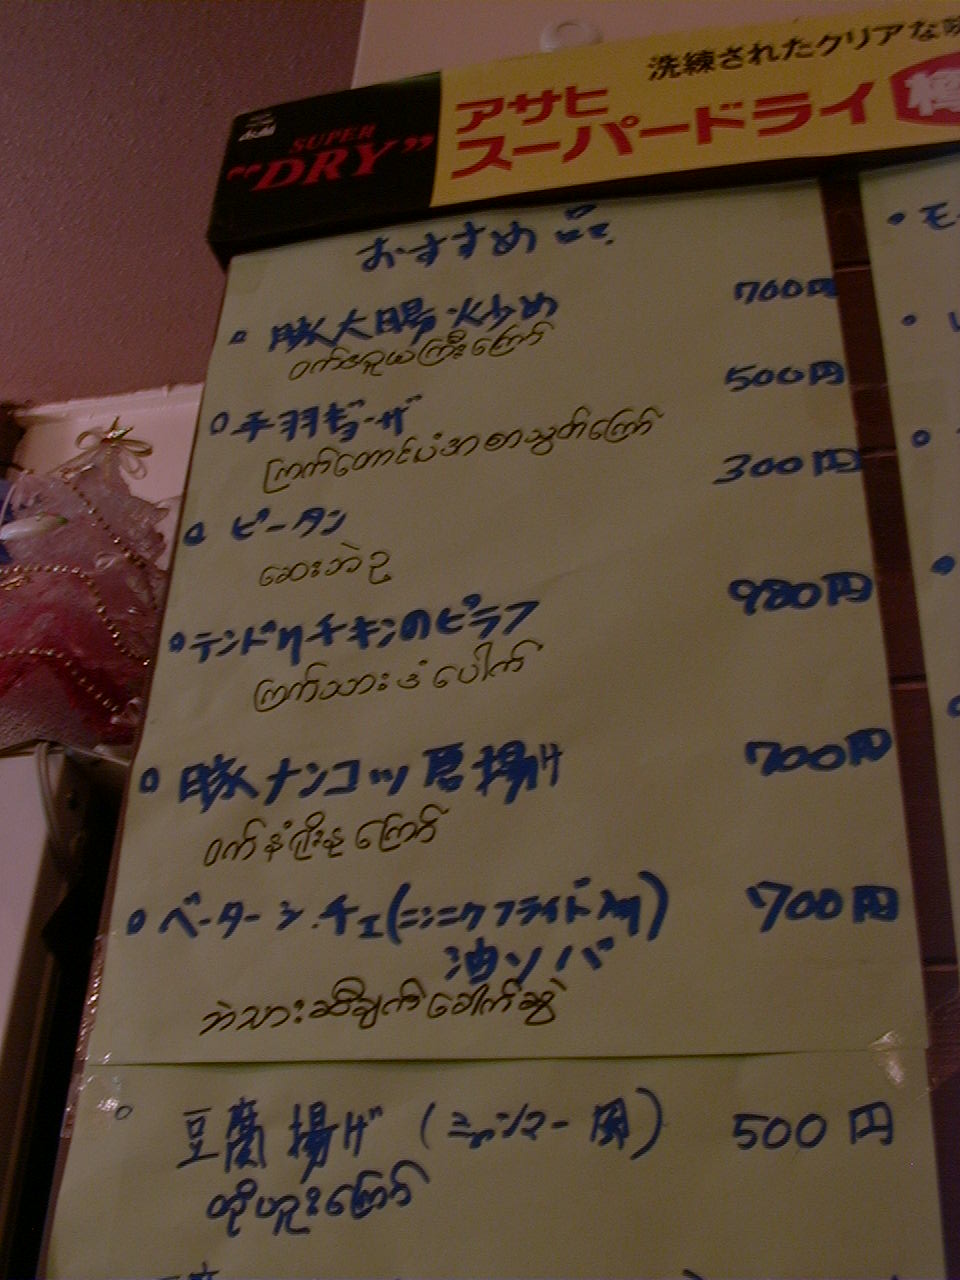 洗練されたクリアな味
Asahi
SUPER
"DRY"
アサヒ
スーパードライ
おすすめ品
豚大腸炒め 700円
ဝက်အူမကြီးကြော်
手羽ギョーザ 500円
ကြက်တောင်ပံအစာသွတ်ကြော်
ピータン 300円
ဆေးဘဲဥ
テンドリチキンのピラフ 980円
ကြက်သားဒံပေါက်
豚ナンコツ唐揚げ 700円
ဝက်နံရိုးနုကြော်
ベーターシ.チェ(ニンニクフライド入り) 700円
油ソバ
ဘဲသားဆီချက်ခေါက်ဆွဲ
豆腐揚げ(ミャンマー風) 500円
တိုဟူးကြော်
モ